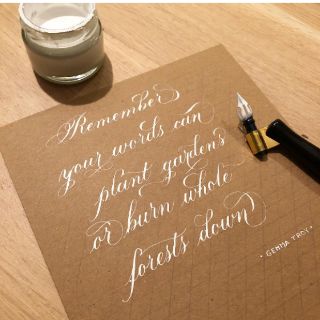 Remember
your words can
plant gardens
or burn whole
forests down
· GEMMA TROY ·